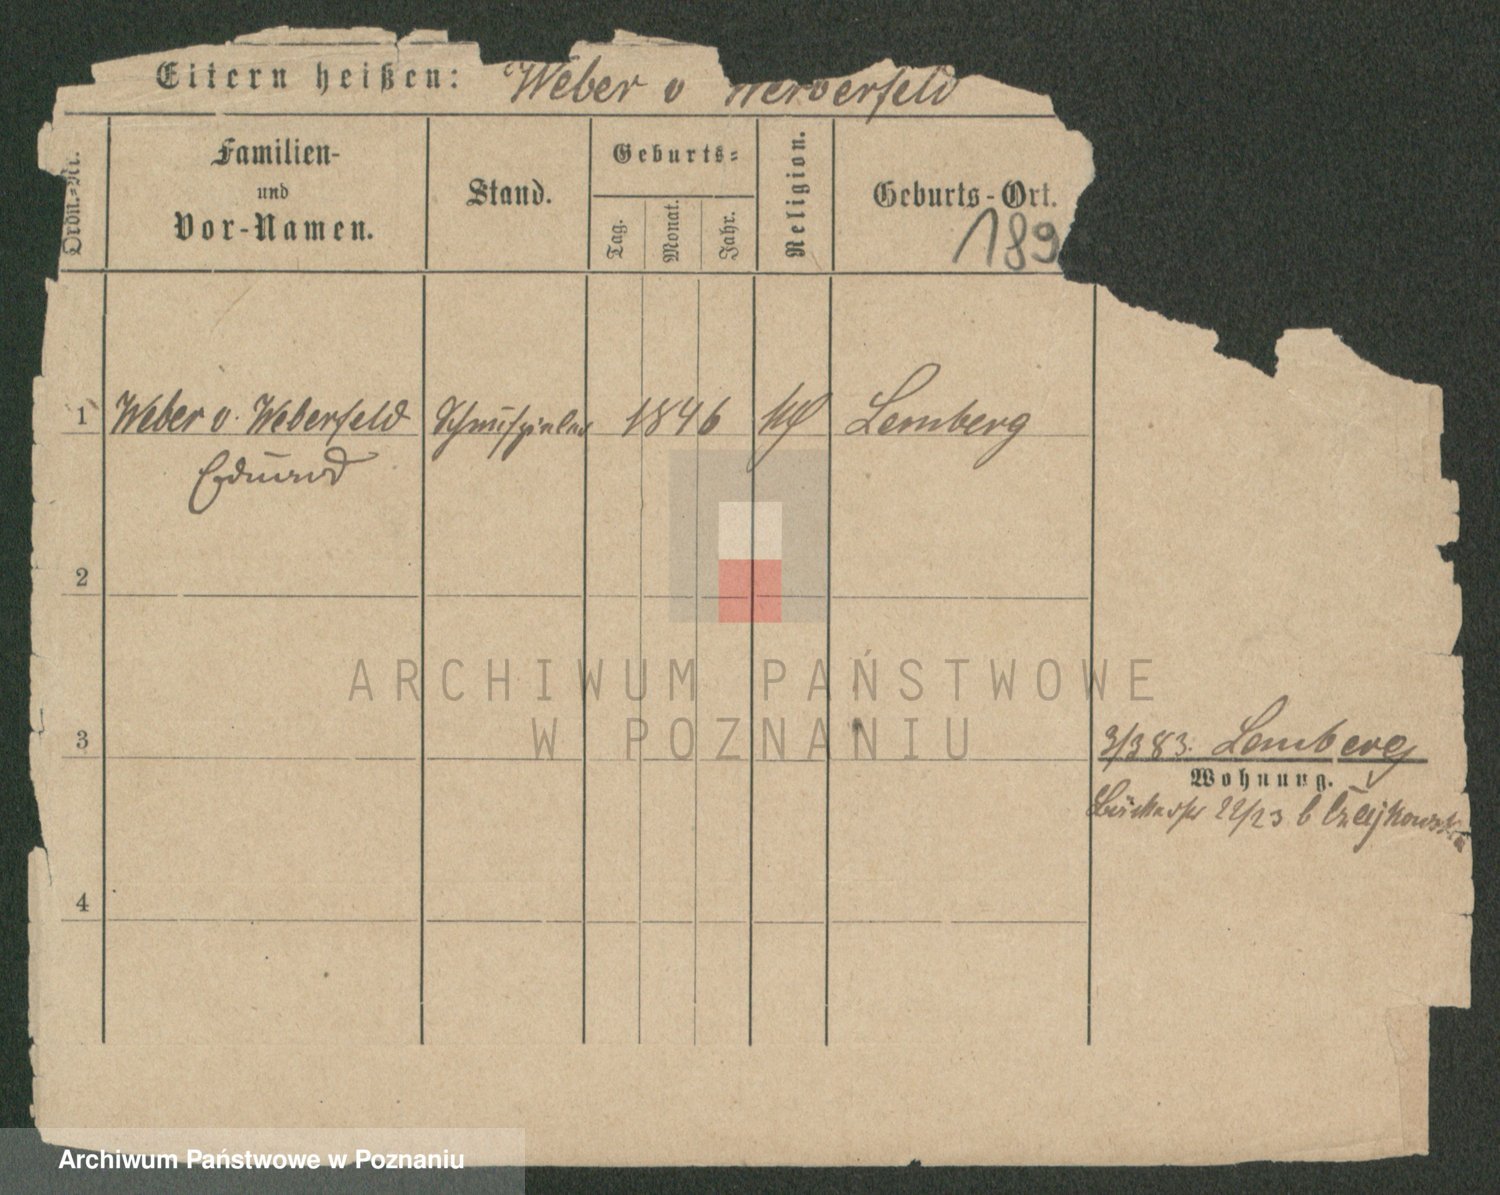 Eltern heißen: Weber v Weberfeld
Ordn.-Nr.
Familien-
und
Vor-Namen.
Stand.
Geburts-
Tag.
Monat.
Jahr.
Religion.
Geburts-Ort.
189
1 Weber v. Weberfeld Schauspieler 1846 Lemberg
Eduard
2
3
4
3/3 83. Lemberg
Wohnung.
22/23 b
ARCHIWUM PAŃSTWOWE
W POZNANIU
Archiwum Państwowe w Poznaniu